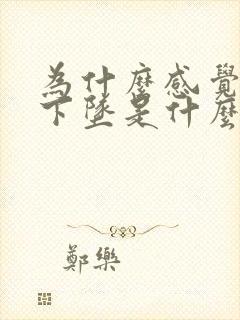 為什麼感覺
下墜是什麼
鄭樂